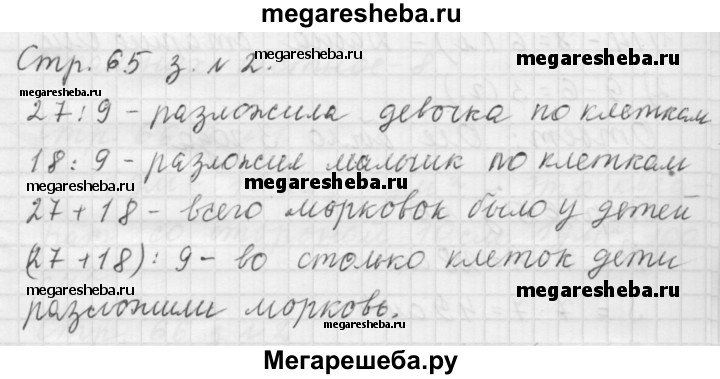 megaresheba.ru
Стр. 65 з. № 2.
megaresheba.ru
megaresheba.ru
27 : 9 – разложила девочка по клеткам
megaresheba.ru
18 : 9 – разложил мальчик по клеткам
megaresheba.ru
megaresheba.ru
27 + 18 – всего морковок было у детей
megaresheba.ru
(27 + 18) : 9 – во столько клеток дети
megaresheba.ru
разложили морковь.
megaresheba.ru
Мегарешеба.ру